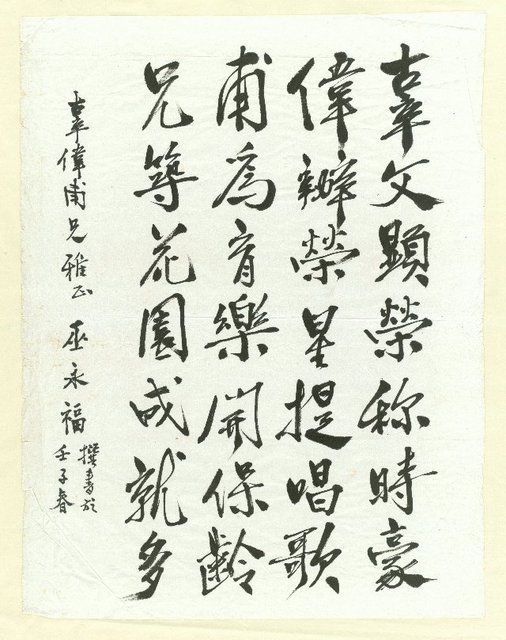 辜文顯榮称時豪
偉辦榮星提唱歌
甫為育樂開保齡
兄築花園成就多
辜偉甫兄雅正 巫永福
撰書於
壬子春